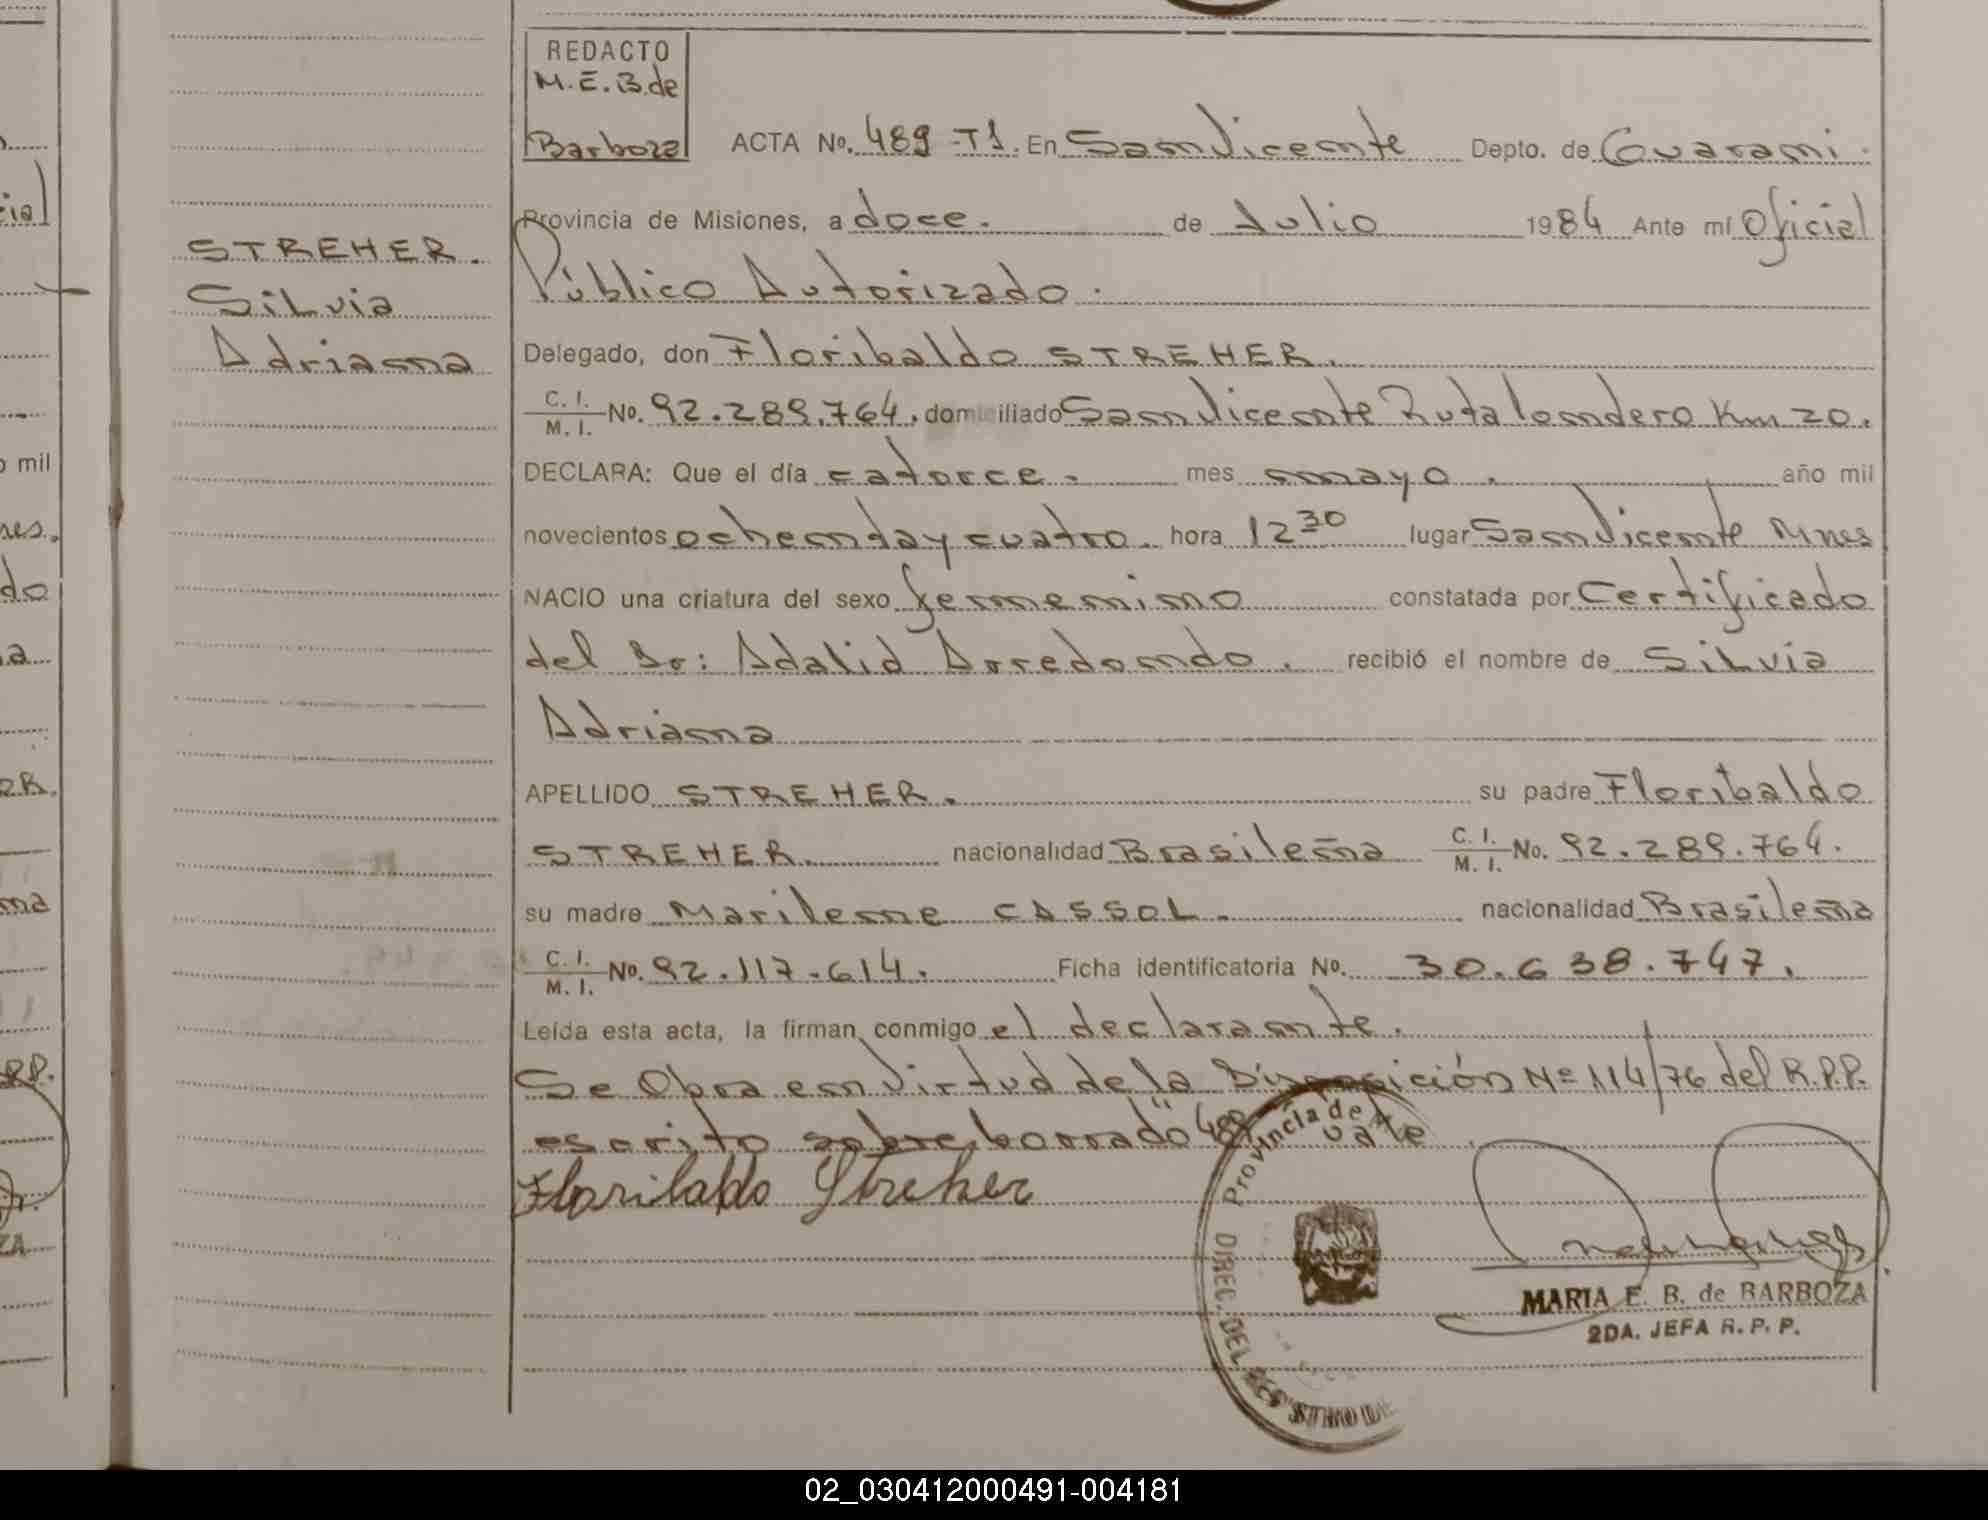 REDACTO
M.E.B. de
Barboza
ACTA No. 489-T1. En San Vicente Depto. de Guarani.
Provincia de Misiones, a doce. de Julio 1984 Ante mí Oficial
Público Autorizado.
STREHER.
Silvia
Adriana
Delegado, don Floribaldo STREHER.
C. I.
M. I. No. 92.289.764. domiciliado San Vicente Ruta londero Km 20.
DECLARA: Que el día catorce. mes mayo. año mil
novecientos ochenta y cuatro. hora 12 30 lugar San Vicente Mnes
NACIO una criatura del sexo femenino constatada por Certificado
del Dr: Adalid Arredondo. recibió el nombre de Silvia
Adriana
APELLIDO STREHER. su padre Floribaldo
STREHER. nacionalidad Brasileña C. I.
M. I. No. 92.289.764.
su madre Marilene CASSOL. nacionalidad Brasileña
C. I.
M. I. No. 92.117.614. Ficha identificatoria No. 30.638.747.
Leída esta acta, la firman conmigo el declarante.
Se Obra en virtud de la Disposición Nº 114/76 del R.P.P.
escrito sobre borrado "489" vale
Floribaldo Streher
Provincia de
DIREC. DEL REGISTRO DE
MARIA E. B. de BARBOZA
2DA. JEFA R. P. P.
cial
o mil
do
RR.
02_030412000491-004181